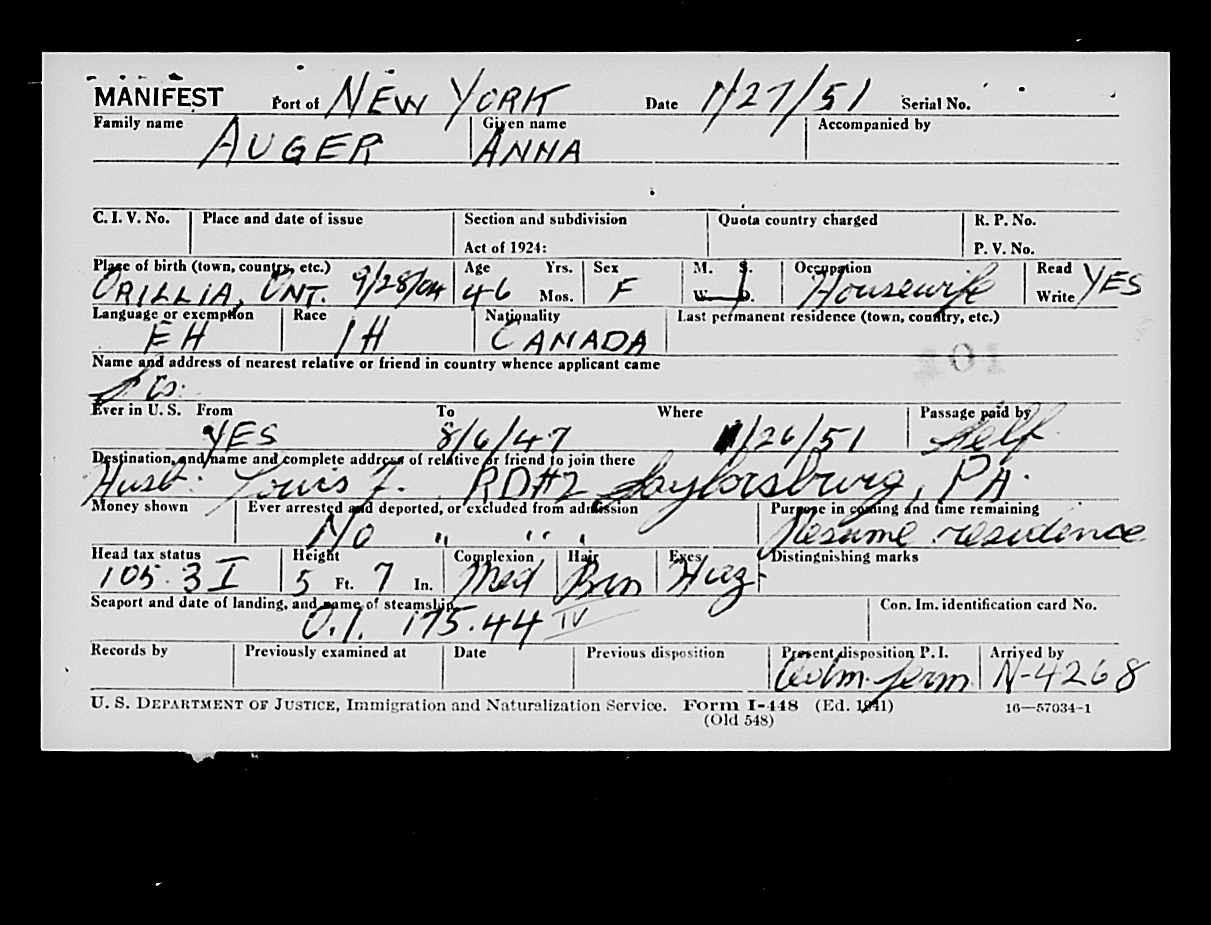 MANIFEST Port of NEW YORK Date 1/27/51 Serial No.
Family name AUGER Given name ANNA Accompanied by
C. I. V. No. Place and date of issue Section and subdivision Quota country charged R. P. No.
Act of 1924: P. V. No.
Place of birth (town, country, etc.) Age Yrs. Sex M. S. Occupation Read YES
ORILLIA, ONT. 9/28/04 46 Mos. F W. D. Housewife Write
Language or exemption Race Nationality Last permanent residence (town, country, etc.)
EH IH CANADA
Name and address of nearest relative or friend in country whence applicant came
101
Ever in U. S. From To Where Passage paid by
YES 8/6/47 1/26/51 Self
Destination, and name and complete address of relative or friend to join there
Husb: Louis F. RD#2 Saylorsburg, PA.
Money shown Ever arrested and deported, or excluded from admission Purpose in coming and time remaining
No " " " Resume residence
Head tax status Height Complexion Hair Eyes Distinguishing marks
105.3 I 5 Ft. 7 In. Med Brn Haz-
Seaport and date of landing, and name of steamship Con. Im. identification card No.
O.I. 175.44 IV
Records by Previously examined at Date Previous disposition Present disposition P. I. Arrived by
Adm. perm. N-4268
U. S. DEPARTMENT OF JUSTICE, Immigration and Naturalization Service. Form I-448 (Ed. 1941) 16—57034-1
(Old 548)